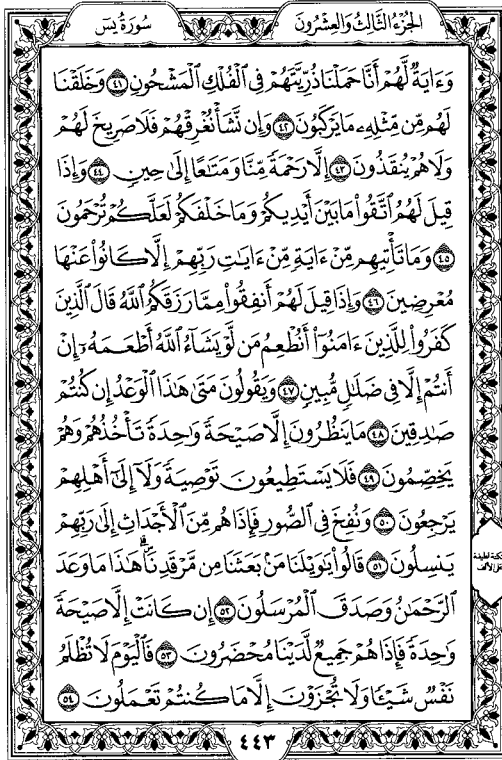 الجزء الثالث والعشرون
سورة يس
وَءَايَةٌ لَّهُمْ أَنَّا حَمَلْنَا ذُرِّيَّتَهُمْ فِي ٱلْفُلْكِ ٱلْمَشْحُونِ ٤١ وَخَلَقْنَا
لَهُم مِّن مِّثْلِهِۦ مَا يَرْكَبُونَ ٤٢ وَإِن نَّشَأْ نُغْرِقْهُمْ فَلَا صَرِيخَ لَهُمْ
وَلَا هُمْ يُنقَذُونَ ٤٣ إِلَّا رَحْمَةً مِّنَّا وَمَتَٰعًا إِلَىٰ حِينٍ ٤٤ وَإِذَا
قِيلَ لَهُمُ ٱتَّقُوا۟ مَا بَيْنَ أَيْدِيكُمْ وَمَا خَلْفَكُمْ لَعَلَّكُمْ تُرْحَمُونَ
٤٥ وَمَا تَأْتِيهِم مِّنْ ءَايَةٍ مِّنْ ءَايَٰتِ رَبِّهِمْ إِلَّا كَانُوا۟ عَنْهَا
مُعْرِضِينَ ٤٦ وَإِذَا قِيلَ لَهُمْ أَنفِقُوا۟ مِمَّا رَزَقَكُمُ ٱللَّهُ قَالَ ٱلَّذِينَ
كَفَرُوا۟ لِلَّذِينَ ءَامَنُوٓا۟ أَنُطْعِمُ مَن لَّوْ يَشَآءُ ٱللَّهُ أَطْعَمَهُۥٓ إِنْ
أَنتُمْ إِلَّا فِي ضَلَٰلٍ مُّبِينٍ ٤٧ وَيَقُولُونَ مَتَىٰ هَٰذَا ٱلْوَعْدُ إِن كُنتُمْ
صَٰدِقِينَ ٤٨ مَا يَنظُرُونَ إِلَّا صَيْحَةً وَٰحِدَةً تَأْخُذُهُمْ وَهُمْ
يَخِصِّمُونَ ٤٩ فَلَا يَسْتَطِيعُونَ تَوْصِيَةً وَلَآ إِلَىٰٓ أَهْلِهِمْ
يَرْجِعُونَ ٥٠ وَنُفِخَ فِي ٱلصُّورِ فَإِذَا هُم مِّنَ ٱلْأَجْدَاثِ إِلَىٰ رَبِّهِمْ
يَنسِلُونَ ٥١ قَالُوا۟ يَٰوَيْلَنَا مَنۢ بَعَثَنَا مِن مَّرْقَدِنَا ۜ هَٰذَا مَا وَعَدَ
ٱلرَّحْمَٰنُ وَصَدَقَ ٱلْمُرْسَلُونَ ٥٢ إِن كَانَتْ إِلَّا صَيْحَةً
وَٰحِدَةً فَإِذَا هُمْ جَمِيعٌ لَّدَيْنَا مُحْضَرُونَ ٥٣ فَٱلْيَوْمَ لَا تُظْلَمُ
نَفْسٌ شَيْـًٔا وَلَا تُجْزَوْنَ إِلَّا مَا كُنتُمْ تَعْمَلُونَ ٥٤
سكتة لطيفة
على الألف
٤٤٣